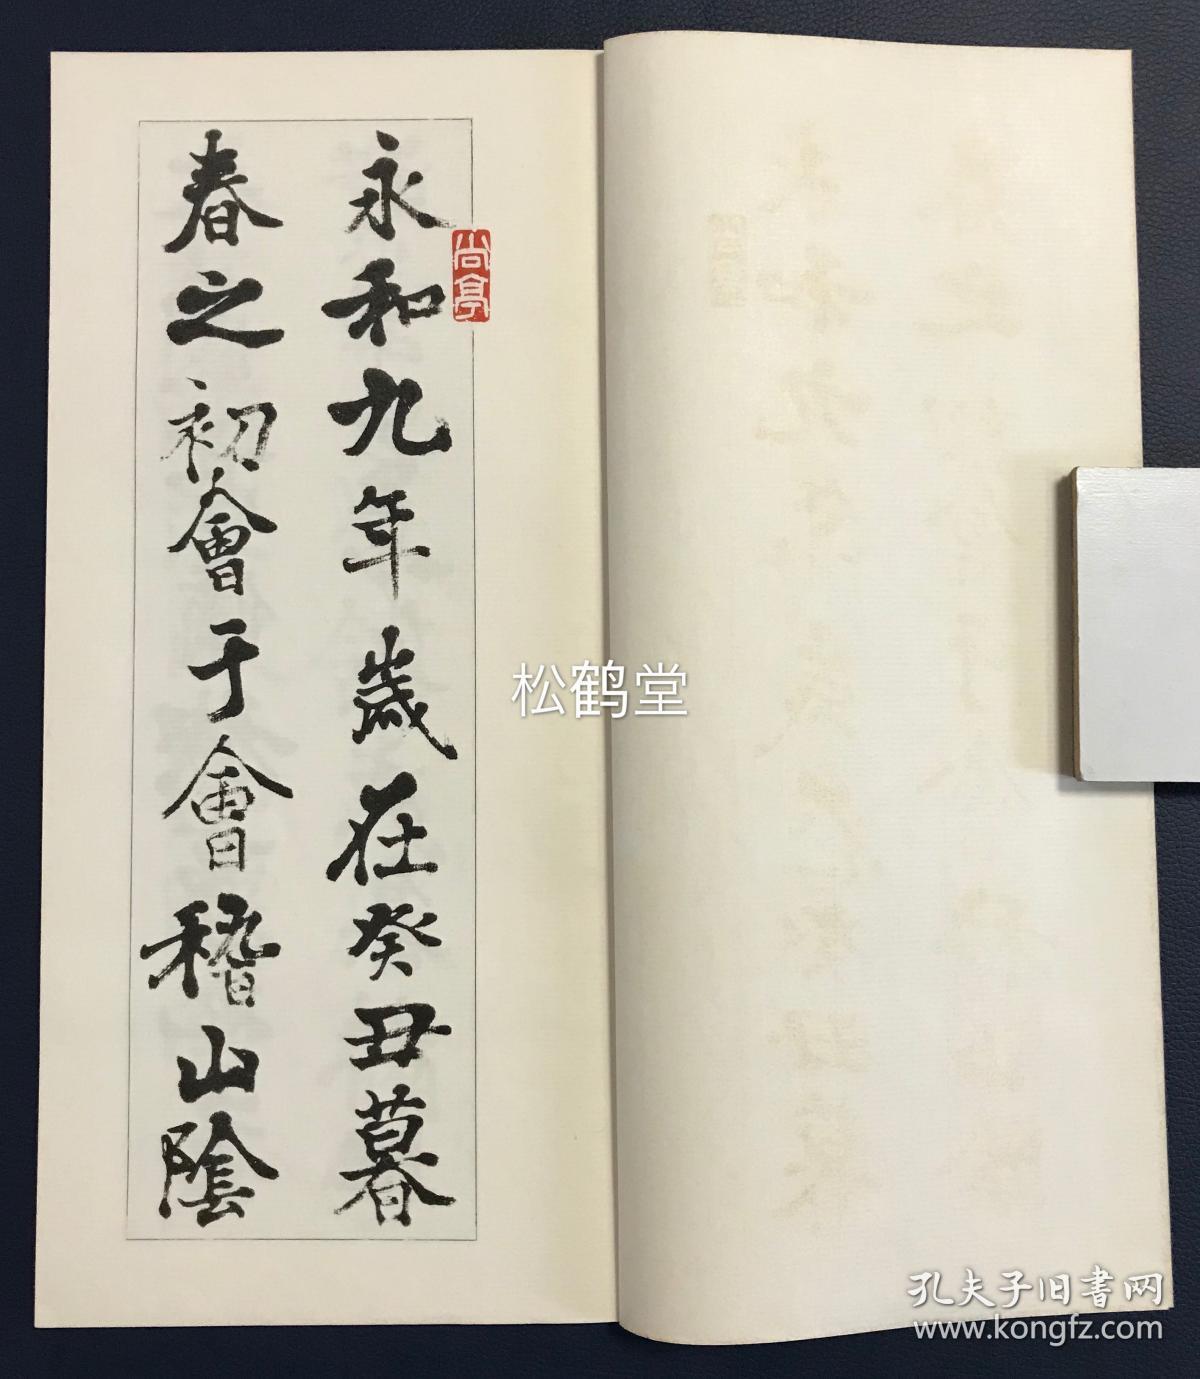 永和九年歲在癸丑暮
春之初會于會稽山陰
尚亭
松鹤堂
孔夫子旧书网
www.kongfz.com